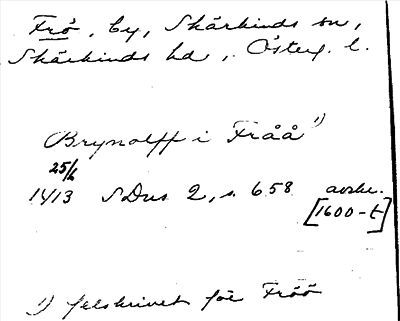 Frö, by, Skärkinds sn,
Skärkinds hd, Österg. l.
Brynolff i Fråå 1)
25/6
1413 SDns 2, s. 658 avskr.
[1600-t]
1) felskrivet för Fröö